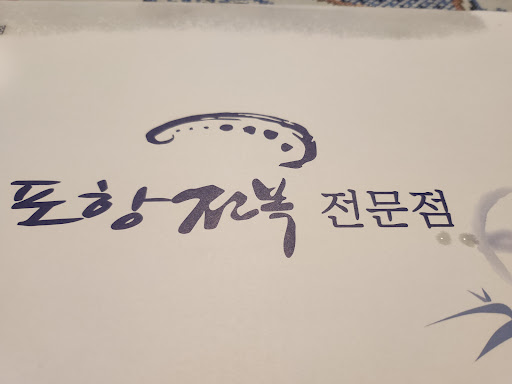 포항전복 전문점